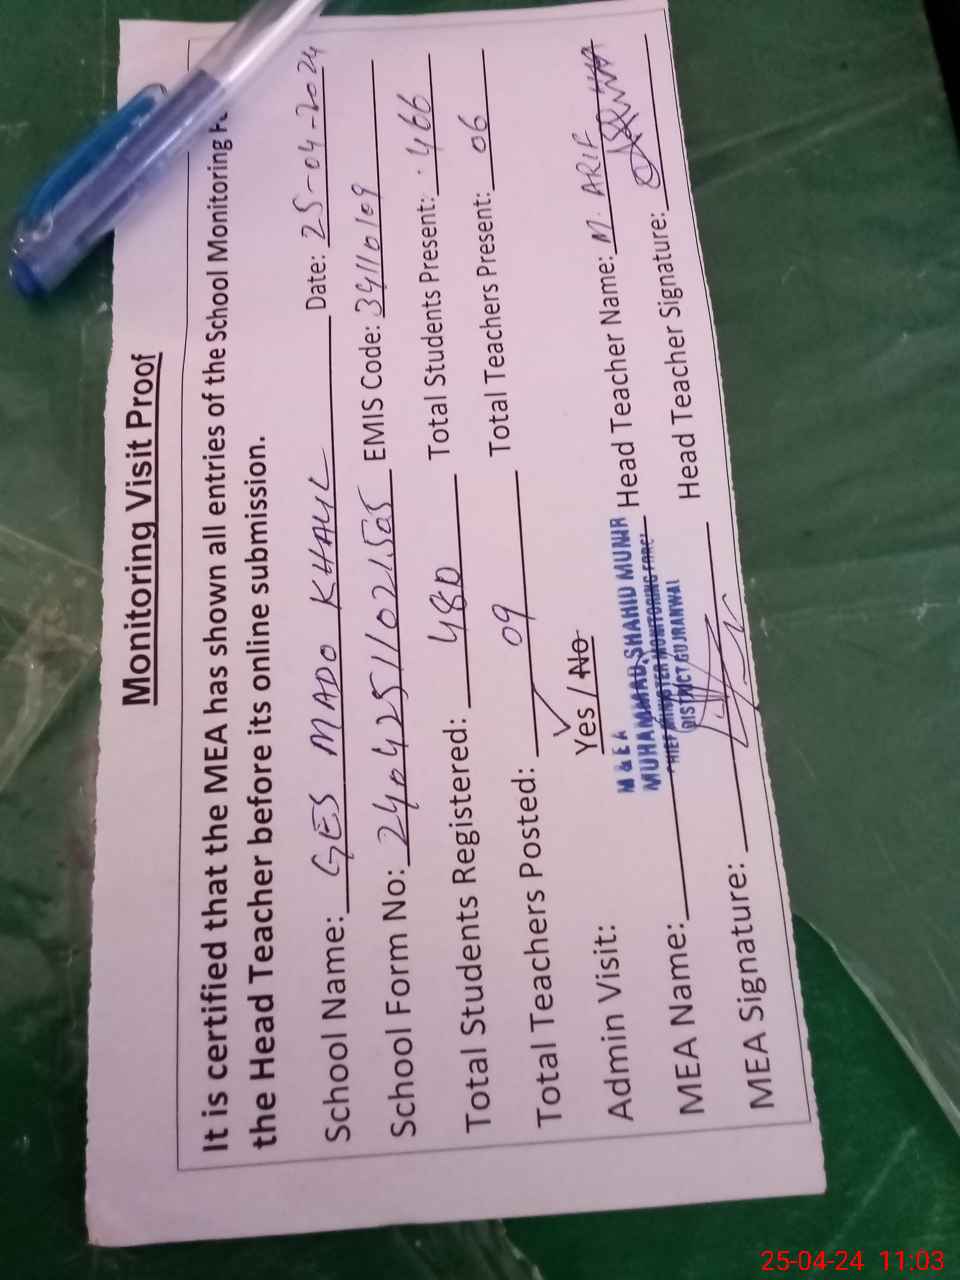 Monitoring Visit Proof
It is certified that the MEA has shown all entries of the School Monitoring
the Head Teacher before its online submission.
School Name: GES MADO KHALIL Date: 25-04-2024
School Form No: 24042511021505 EMIS Code: 34110109
Total Students Registered: 480 Total Students Present: 466
Total Teachers Posted: 09 Total Teachers Present: 06
Admin Visit: Yes / No
M & E A
MUHAMMAD SHAHID MUNIR
CHIEF MINISTER MONITORING FORCE
DISTRICT GUJRANWAL
MEA Name: Head Teacher Name: M. ARIF
MEA Signature: Head Teacher Signature:
25-04-24 11:03